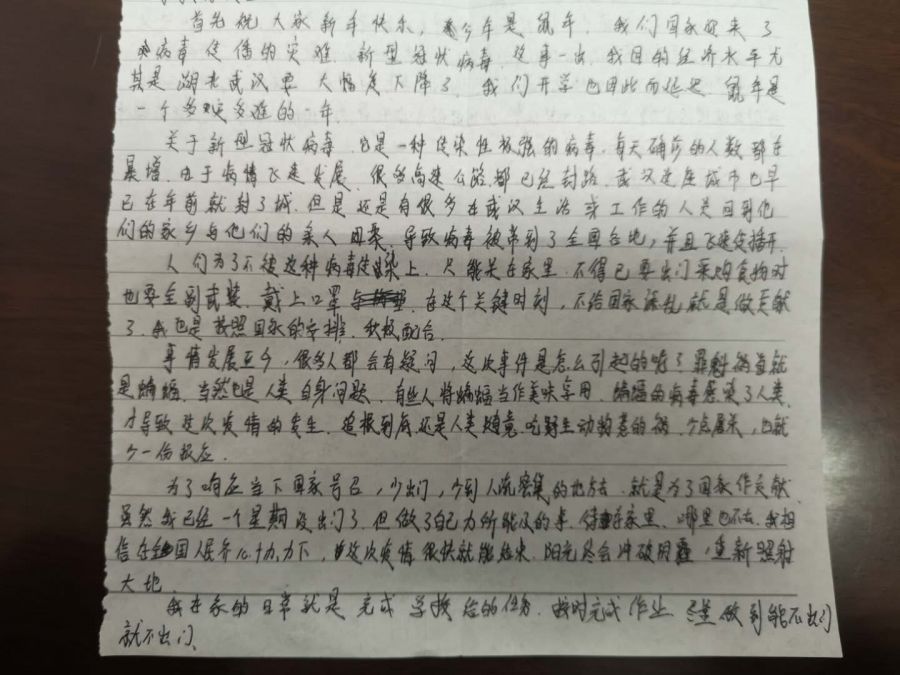 首先祝大家新年快乐，今年是鼠年．我们国家迎来了
病毒传播的灾难．新型冠状病毒．这事一出．我国的经济水平尤
其是湖北武汉要大幅度下降了．我们开学也因此而延迟．鼠年是
一个多灾多难的一年．
关于新型冠状病毒．它是一种传染性极强的病毒．每天确诊的人数都在
暴增．由于病情飞速发展．很多高速公路都已经封路．武汉这座城市也早
已在年前就封了城．但是还是有很多在武汉生活或工作的人员回到他
们的家乡与他们的亲人团聚．导致病毒被带到了全国各地，并且飞速传播开．
人们为了不被这种病毒传染上．只能关在家里．不得已要出门采购食物时
也要全副武装．戴上口罩．在这个关键时刻，不给国家添乱就是做贡献
了．我也是按照国家的安排．积极配合．
事情发展至今，很多人都会有疑问，这次事件是怎么引起的呢？罪魁祸首就
是蝙蝠．当然也是人类自身问题．有些人将蝙蝠当作美味享用．蝙蝠的病毒感染了人类．
才导致这次疫情的发生．追根到底还是人类随意吃野生动物惹的祸．，也就
一份报应．
为了响应当下国家号召，少出门，少到人流密集的地方去．就是为了国家作贡献．
虽然我已经一个星期没出门了．但做了自己力所能及的事．待在家里．哪里也不去．我相
信在全国人民齐心协力下，这次疫情很快就能结束．阳光终会冲破阴霾，重新照射
大地．
我在家的日常就是完成学校给的任务．按时完成作业．做到能不出门
就不出门．